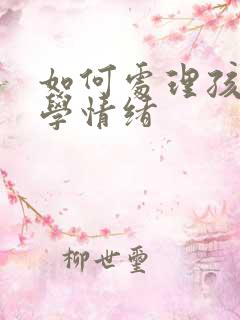 如何處理孩
學情緒
柳世璽